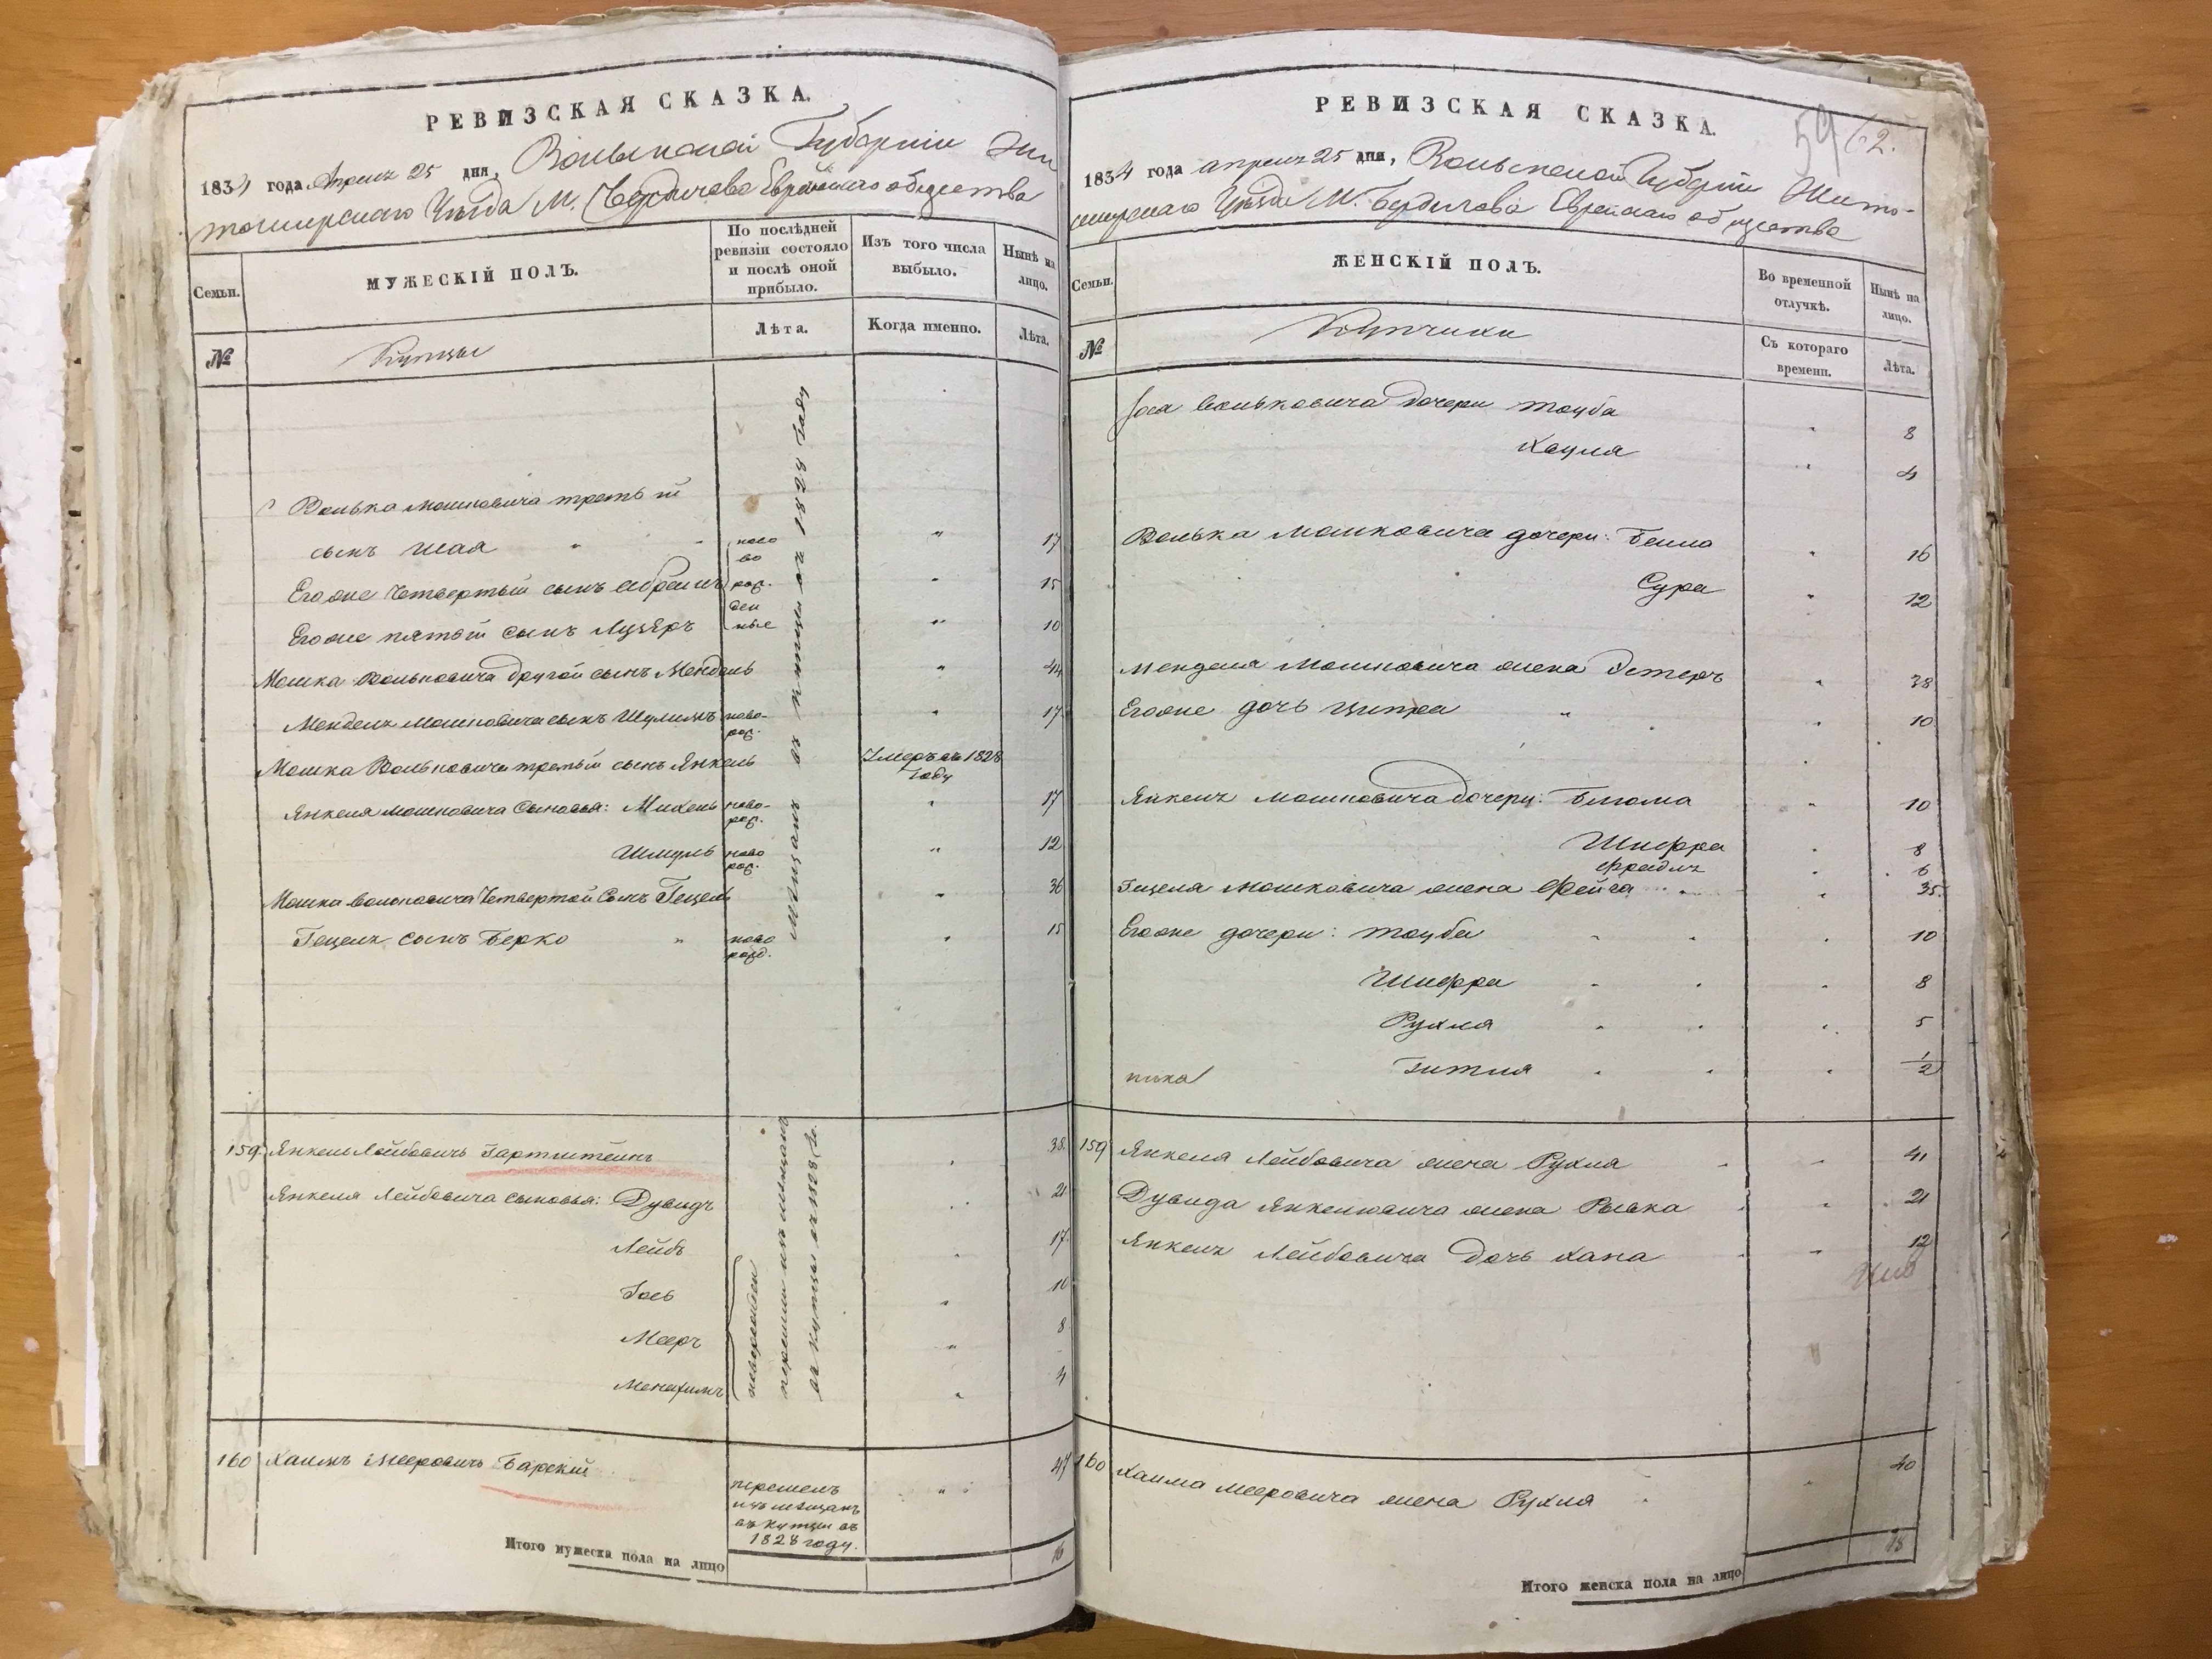 РЕВИЗСКАЯ СКАЗКА.
1834 года Апреля 25 дня, Волынской Губернии Жи
томирского Уезда М. Бердичева Еврейского общества
Семьи.
МУЖЕСКІЙ ПОЛЪ.
По послѣдней ревизіи состояло и послѣ оной прибыло.
Изъ того числа выбыло.
Нынѣ на лицо.
№
Купцы
Лѣта.
Когда именно.
Лѣта.
Волька Мошковича третьй
сынъ Шая " ново " 17
Его же Четвертый сынъ Абрамъ род. " 15
Его же пятой сынъ Лузеръ ные " 10
Мошка Вольковича другой сынъ Мендель " 44
Мендель Мошковича сынъ Шулимъ ново-род. " 17
Мошка Вольковича третьй сынъ Янкель Умеръ въ 1828 году
Янкеля Мошковича Сыновья: Михель ново-род. " 17
Шмуль ново род. " 12
Мошка Вольковича Четвертой Сынъ Гецель " 36
Гецель сынъ Берко " ново рожд. " 15
мещанъ въ купцы въ 1828 году
159 Янкель Лейбовичъ Гартштейнъ " 38
Янкеля Лейбовича сыновья: Дувидъ " 21
Лейбъ " 17
Іось " 10
Мееръ " 8
Менахимъ " 4
новорожден
перешли изъ мещанъ
въ купцы въ 1828 го.
160 Хаимъ Мееровичъ Барскій " 47
перешелъ
изъ мещанъ
въ купцы въ
1828 году.
Итого мужеска пола на лицо 16
РЕВИЗСКАЯ СКАЗКА.
59 62.
1834 года апреля 25 дня, Волынской Губерніи Жито-
мирского Уезда М. Бердичева Еврейского общества
Семьи.
ЖЕНСКІЙ ПОЛЪ.
Во временной отлучкѣ.
Нынѣ на лицо.
№
Купчихи
Съ котораго времени.
Лѣта.
Іося Вольковича дочери Тауба " 8
Хауля " 4
Волька Мошковича дочери: Бейла " 16
Сура " 12
Менделя Мошковича жена Эстеръ " 38
Его же дочь Ципра " 10
Янкель Мошковича дочери: Блюма " 10
Шифра " 8
Фрейдль " 6
Гецеля Мошковича жена Фейга " 35
Его же дочери: Тауба " 10
Шифра " 8
Рухля " 5
Гитля " 1/2
159 Янкеля Лейбовича жена Рухля " 41
Дувида Янкелювича жена Рывка " 21
Янкель Лейбовича дочь Хана " 12
160 Хаима Мееровича жена Рухля " 40
Итого женска пола на лицо 18